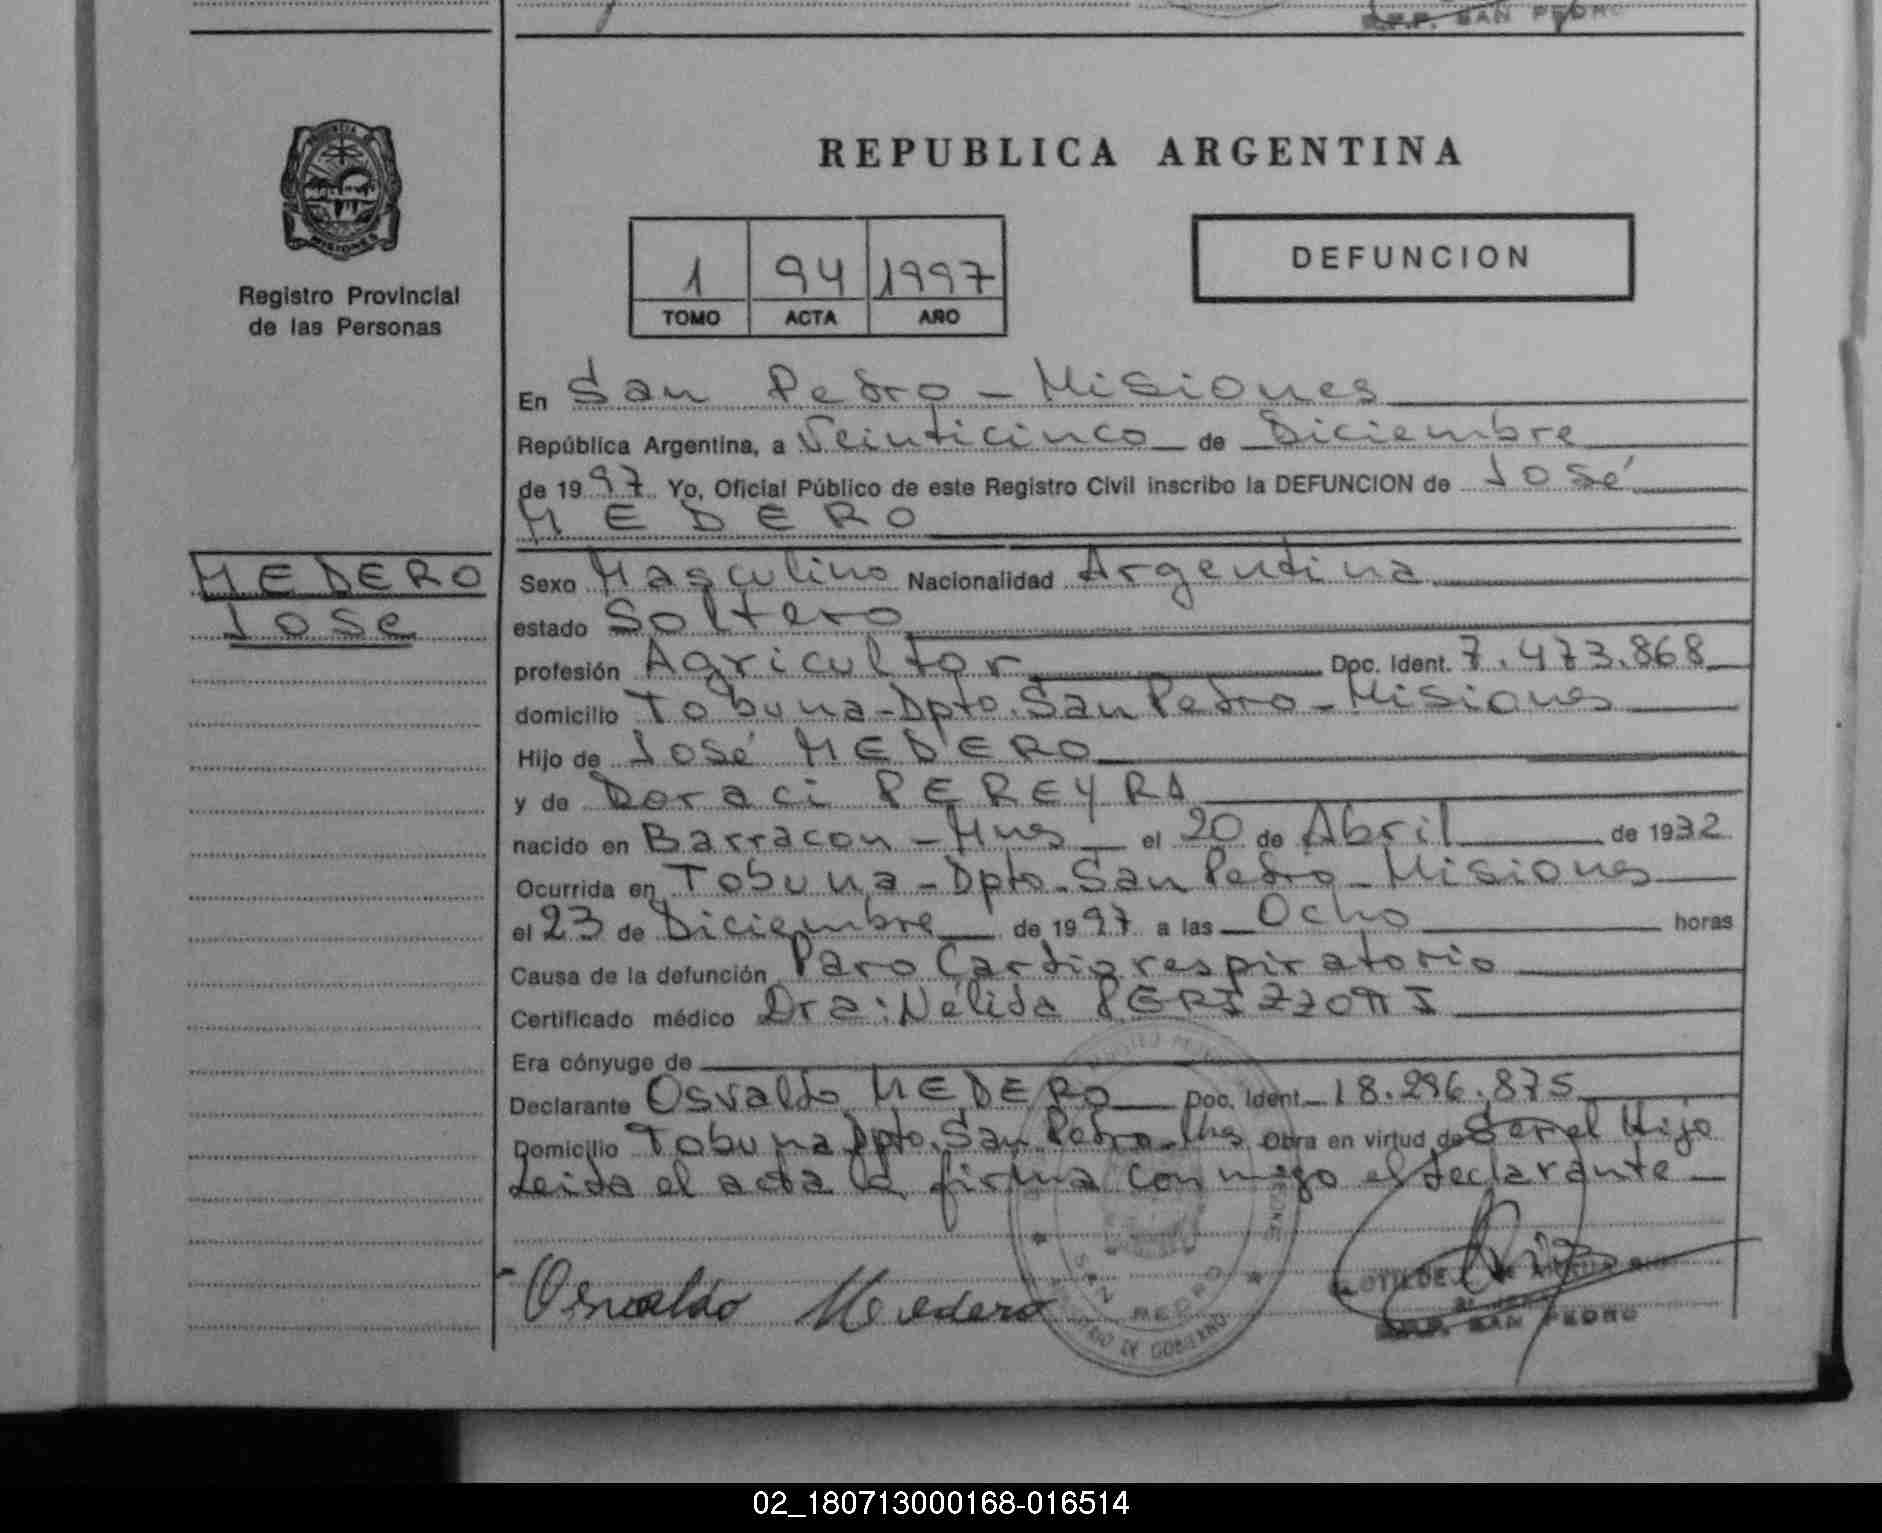 S.P.P. SAN PEDRO
PROVINCIA
MISIONES
Registro Provincial
de las Personas
REPUBLICA ARGENTINA
1 94 1997
TOMO ACTA AÑO
DEFUNCION
En San Pedro - Misiones
República Argentina, a Veinticinco de Diciembre
de 1997 Yo, Oficial Público de este Registro Civil inscribo la DEFUNCION de José
MEDERO
MEDERO
Jose
Sexo Masculino Nacionalidad Argentina
estado Soltero
profesión Agricultor Doc. Ident. 7.473.868
domicilio Tobuna-Dpto. San Pedro - Misiones
Hijo de José MEDERO
y de Doraci PEREYRA
nacido en Barracon - Mnes el 20 de Abril de 1932
Ocurrida en Tobuna - Dpto. San Pedro - Misiones
el 23 de Diciembre de 1997 a las Ocho horas
Causa de la defunción Paro Cardiorespiratorio
Certificado médico Dra: Nélida
Era cónyuge de
Declarante Osvaldo MEDERO Doc. Ident. 18.296.875
Domicilio Tobuna Dpto. San Pedro - Mnes Obra en virtud de Ser el Hijo
Leida el acta la firma conmigo el declarante
Osvaldo Medero
SAN PEDRO
DE GOBIERNO
SAN PEDRO
02_180713000168-016514